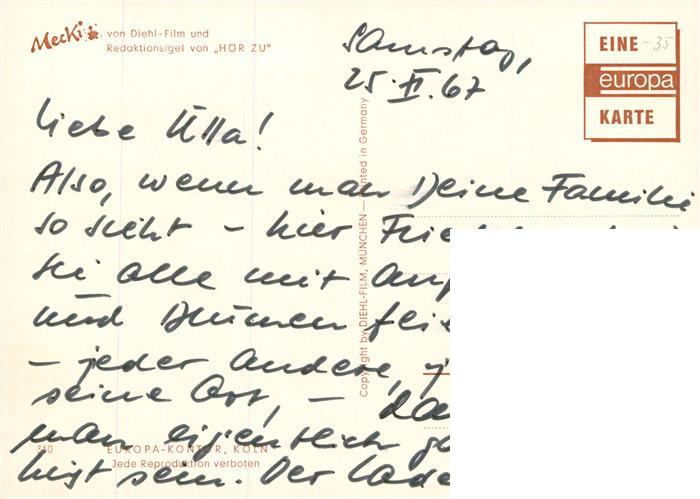 Mecki von Diehl-Film und
Redaktionsigel von „HÖR ZU"
EINE -35
europa
KARTE
Samstag,
25.II.67
Liebe Ulla!
Also, wenn man Deine Familie
so sieht - hier
sie alle mit
und Blumen
- jeder Andere,
seine Art, -
man eigentlich
sein. Der
Copyright by DIEHL-FILM, MÜNCHEN — Printed in Germany
310 EUROPA-KONTOR, KÖLN
Jede Reproduktion verboten